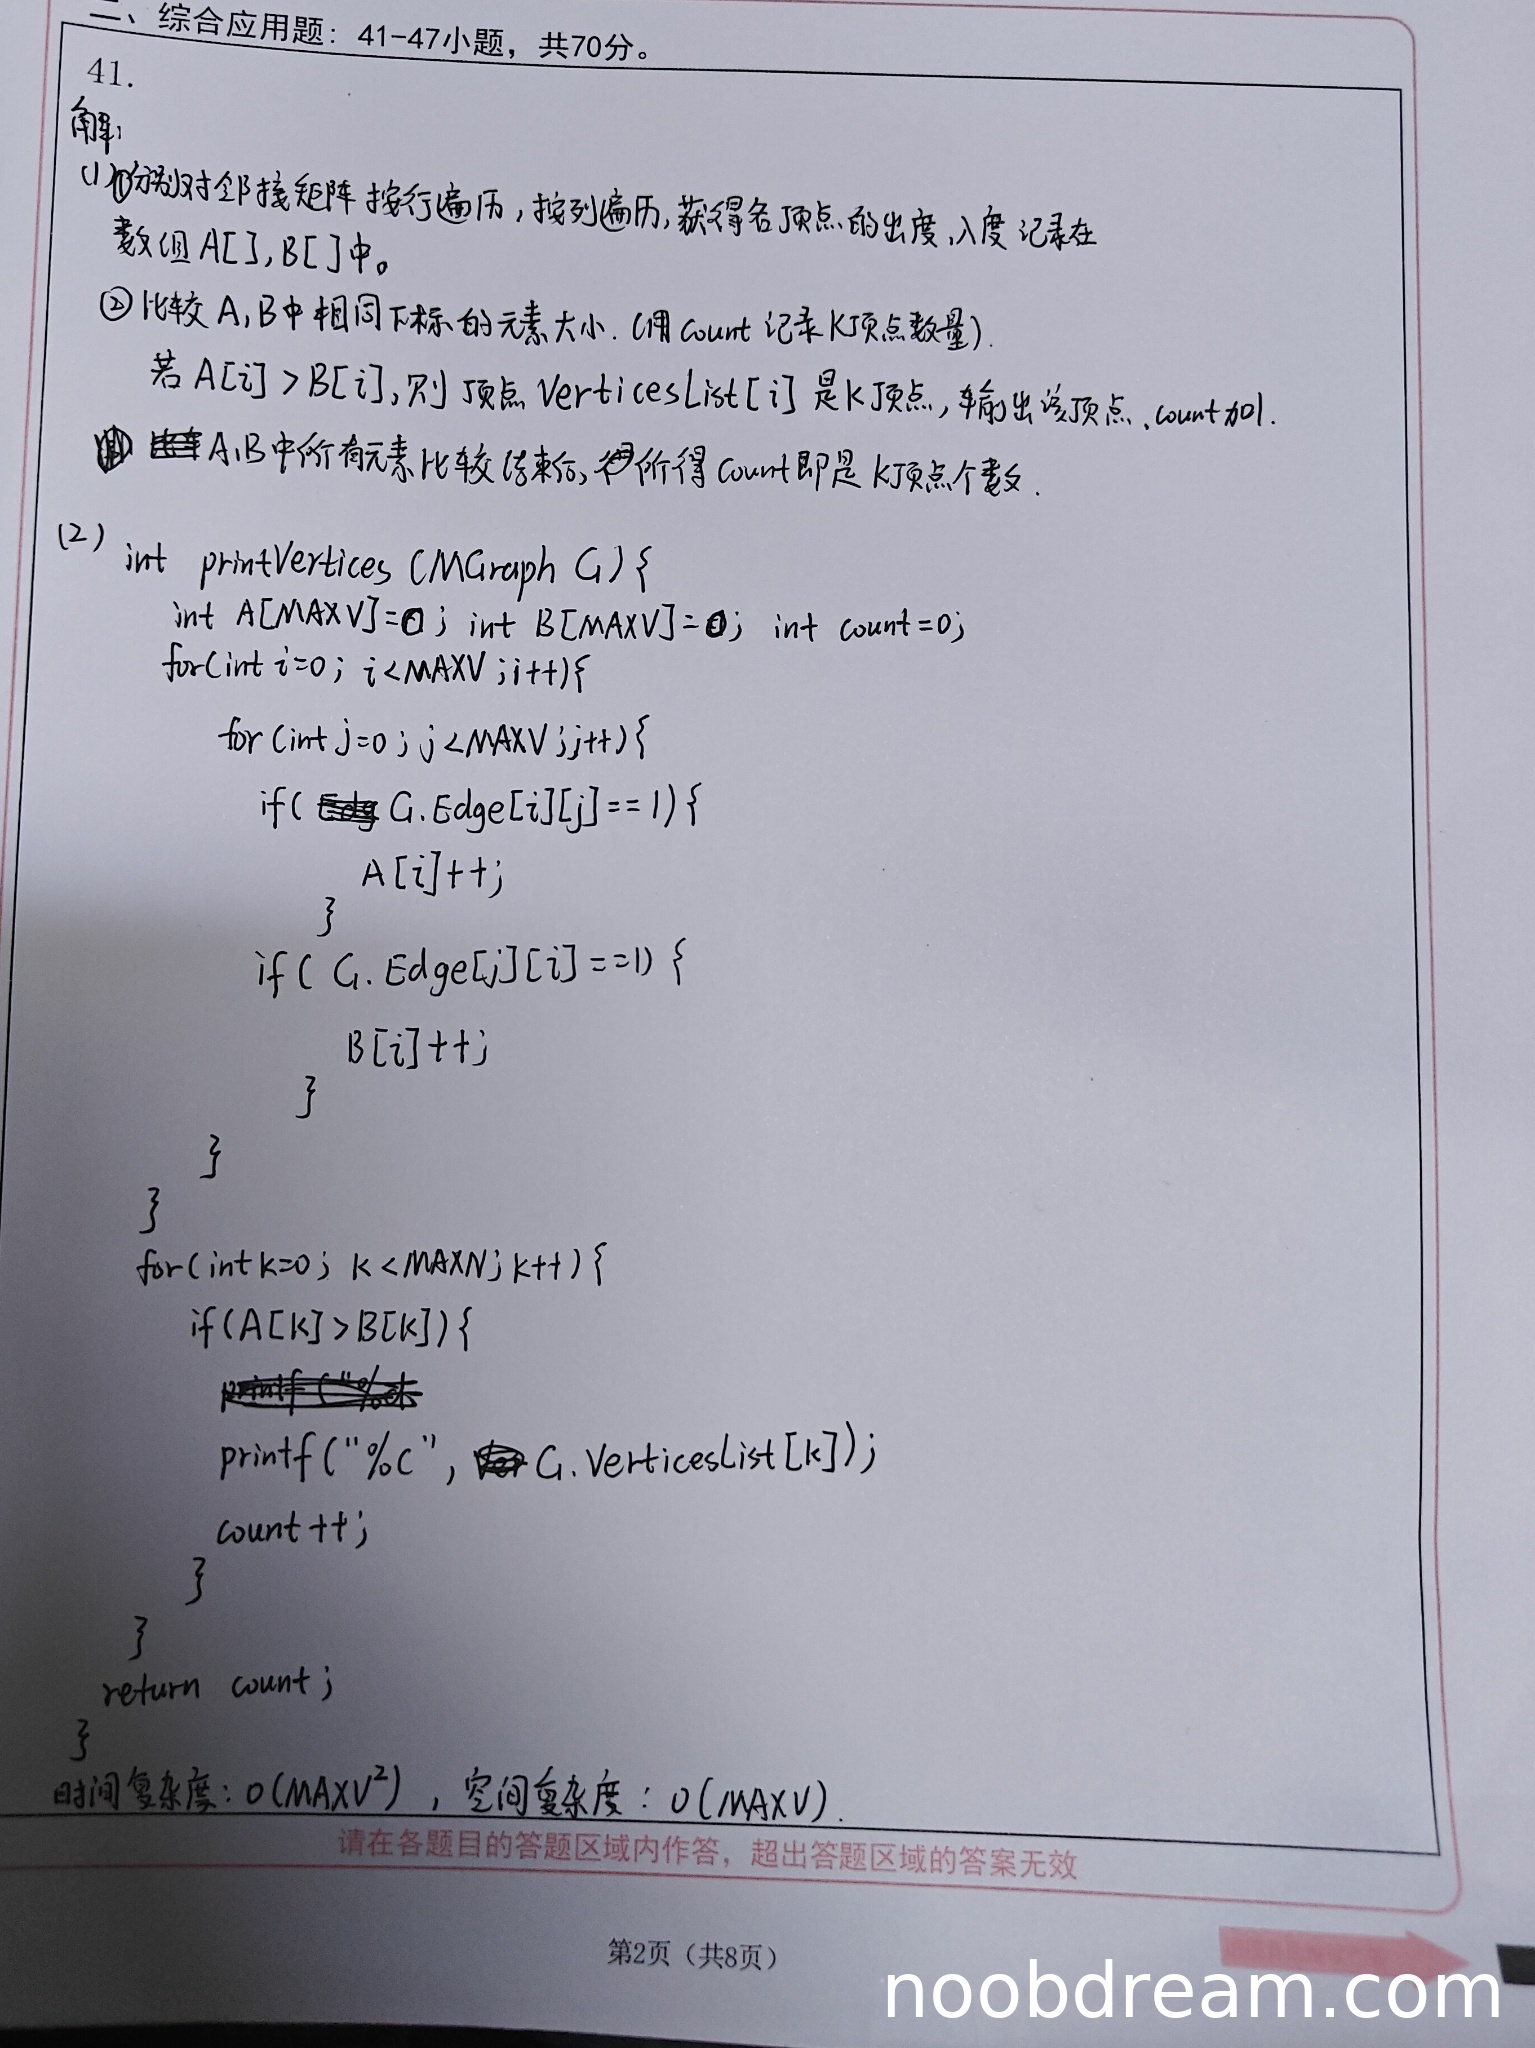 二、综合应用题：41-47小题，共70分。
41.
解：
(1)①分别对邻接矩阵按行遍历，按列遍历，获得各顶点的出度、入度记录在
数组A[],B[]中。
②比较A,B中相同下标的元素大小.(用count记录K顶点数量).
若A[i]>B[i],则顶点VerticesList[i]是K顶点,输出该顶点、count加1.
A、B中所有元素比较结束后,所得count即是K顶点个数.
(2)
int printVertices (MGraph G){
int A[MAXV]=0; int B[MAXV]=0; int count=0;
for(int i=0; i<MAXV;i++){
for(int j=0; j<MAXV;j++){
if( G.Edge[i][j]==1){
A[i]++;
}
if( G.Edge[j][i]==1) {
B[i]++;
}
}
}
for(int k=0; k<MAXN; k++){
if(A[k]>B[k]){
printf("%c", G.VerticesList[k]);
count++;
}
}
return count;
}
时间复杂度：O(MAXV²)，空间复杂度：O(MAXV).
请在各题目的答题区域内作答，超出答题区域的答案无效
第2页（共8页）
noobdream.com